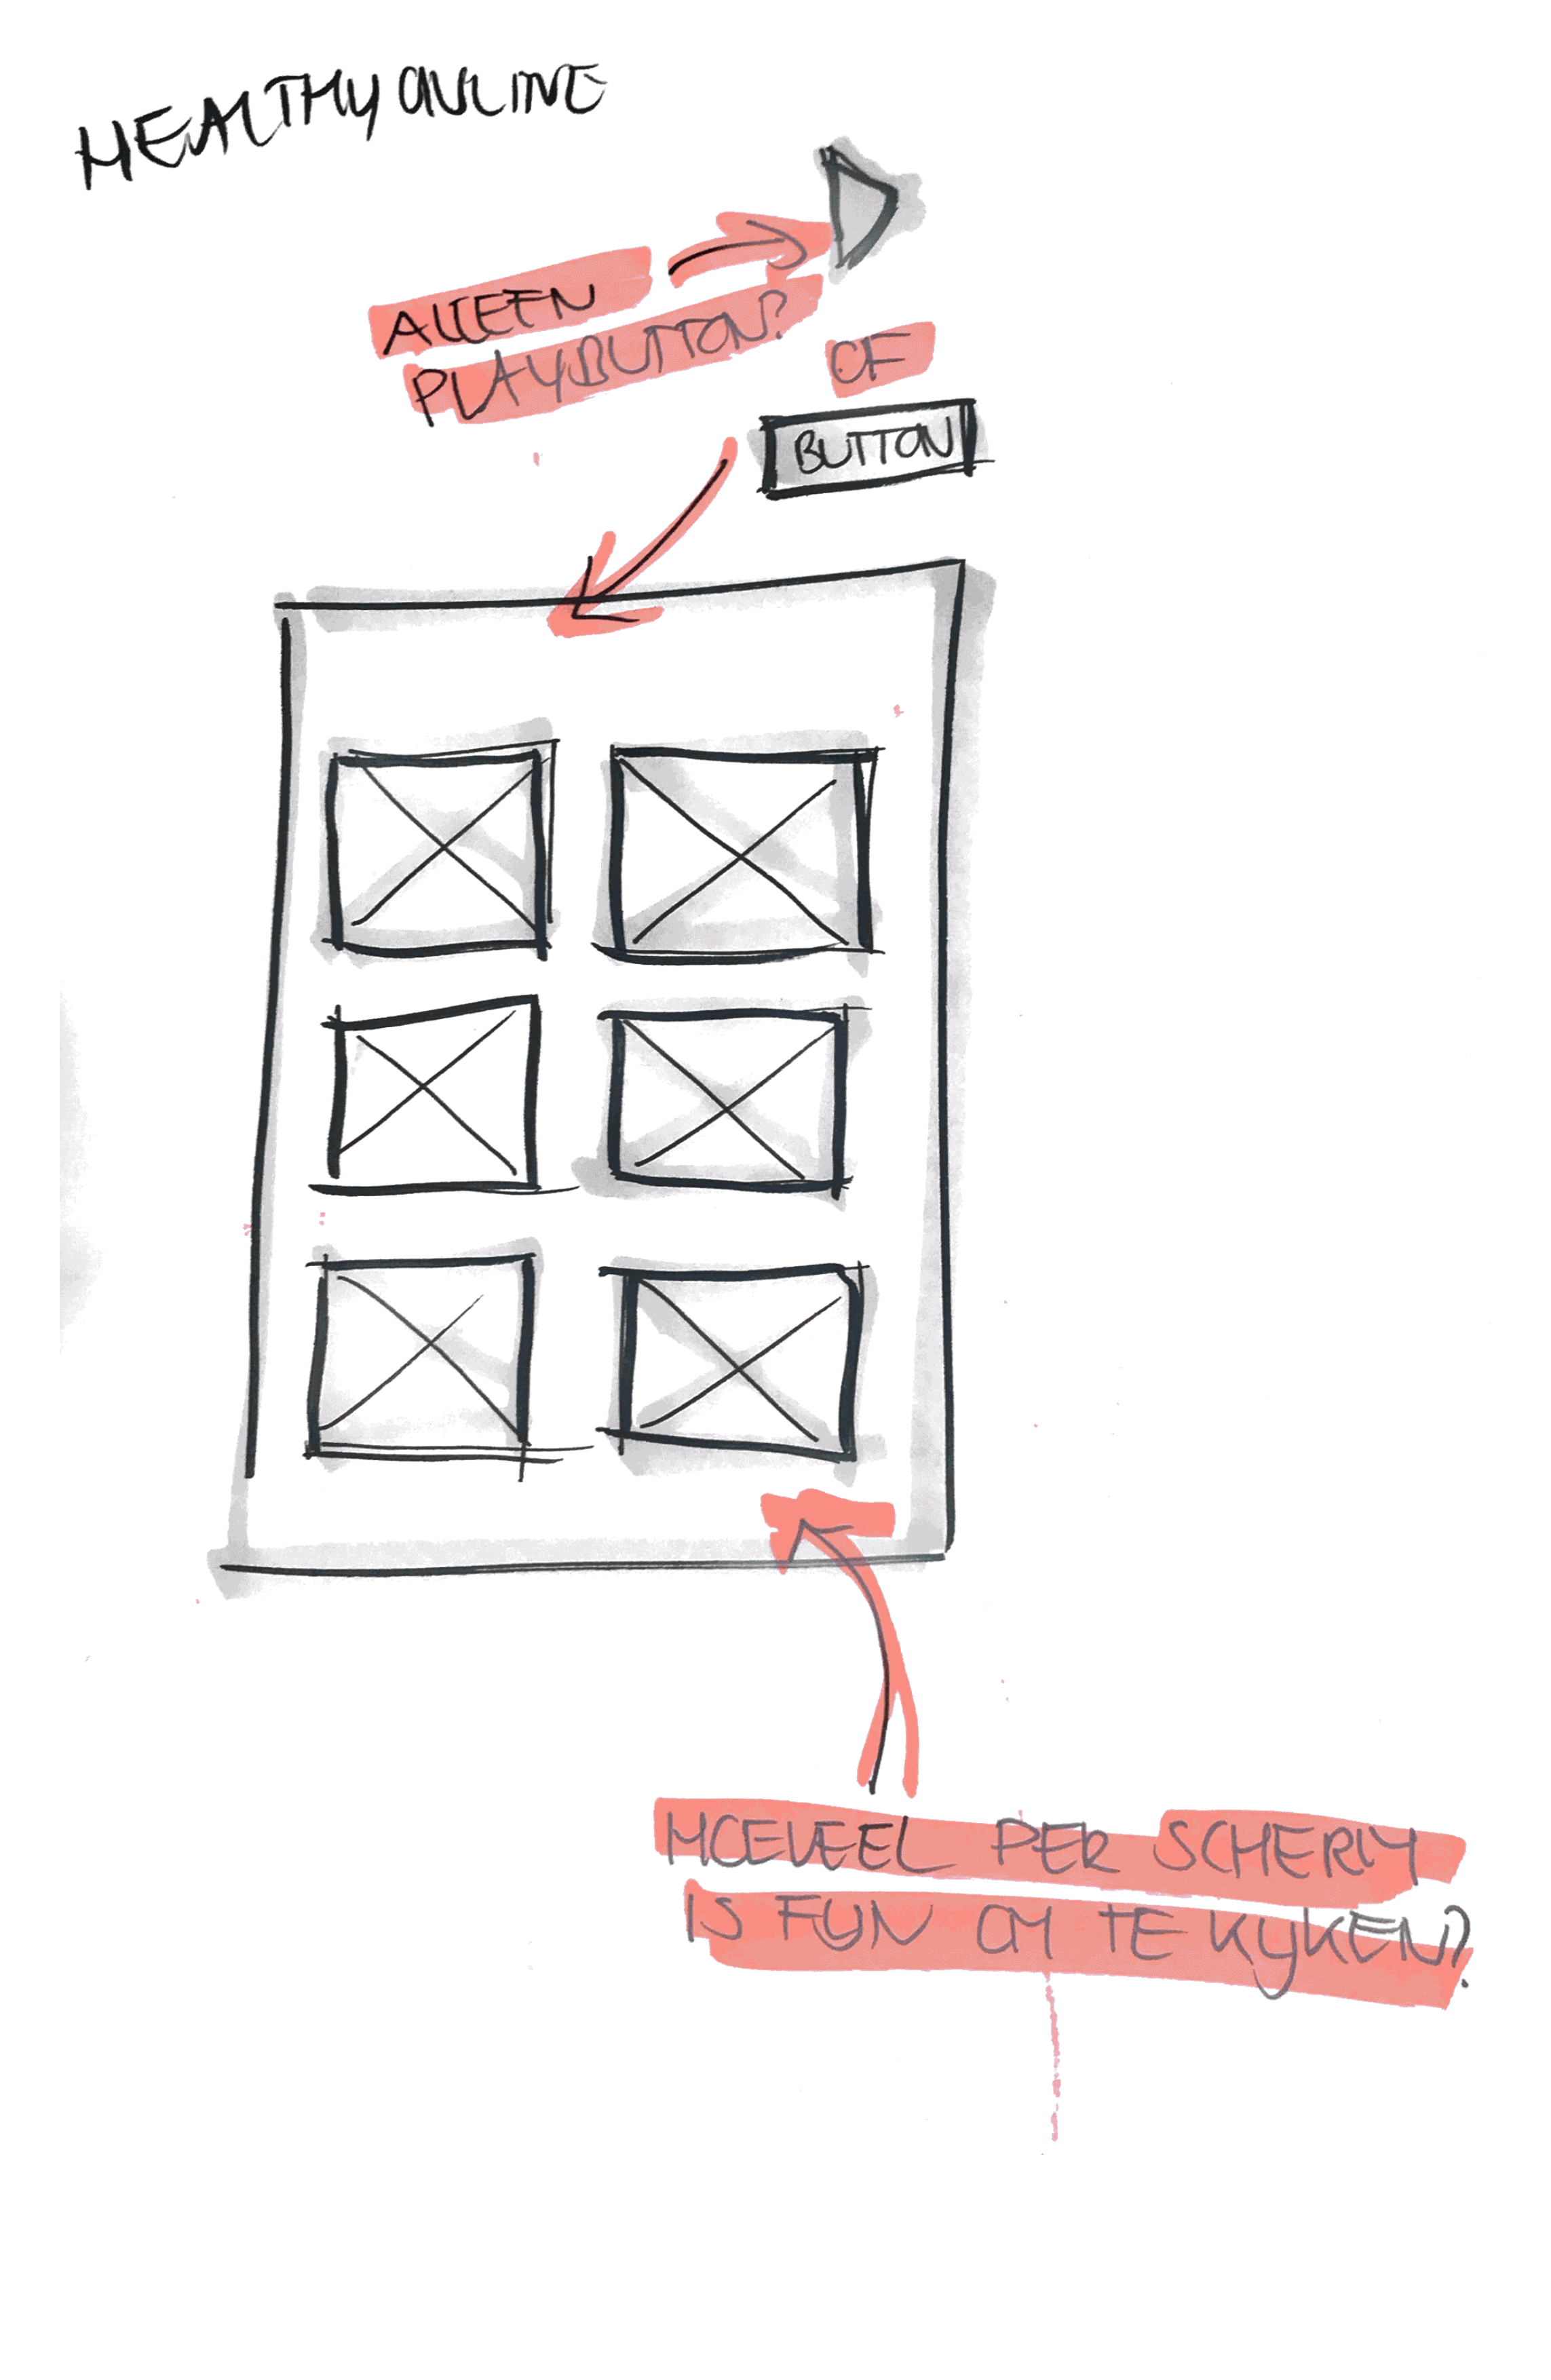 HEALTHY ONLINE
ALLEEN
PLAYBUTTON?
OF
BUTTON
HOEVEEL PER SCHERM
IS FIJN OM TE KIJKEN?